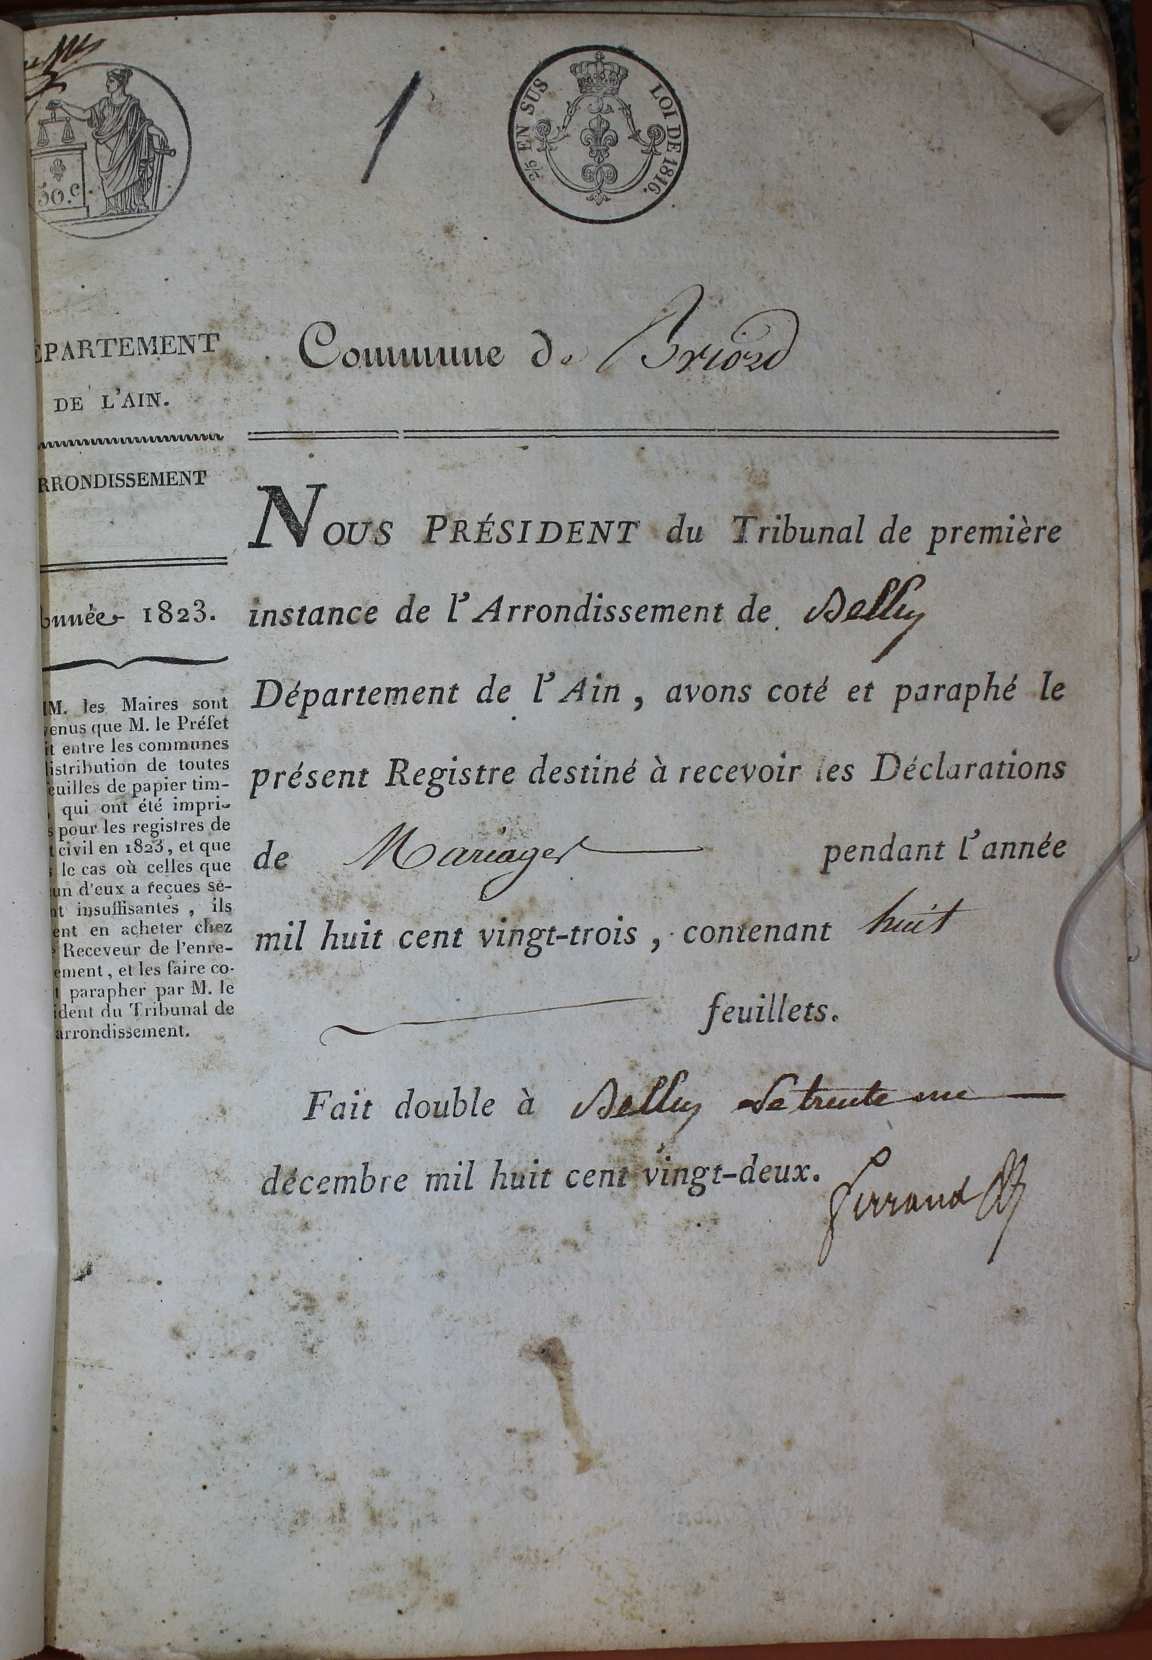 1
50.c
2/5 EN SUS LOI DE 1816.
EPARTEMENT
DE L'AIN.
RRONDISSEMENT
nnée 1823.
M. les Maires sont
enus que M. le Préfet
it entre les communes
istribution de toutes
euilles de papier tim-
, qui ont été impri-
s pour les registres de
t civil en 1823, et que
s le cas où celles que
un d'eux a reçues se-
nt insuffisantes, ils
ent en acheter chez
e Receveur de l'enre-
ement, et les faire co-
t parapher par M. le
ident du Tribunal de
arrondissement.
Commune de Briord
NOUS PRÉSIDENT du Tribunal de première
instance de l'Arrondissement de Belley
Département de l'Ain, avons coté et paraphé le
présent Registre destiné à recevoir les Déclarations
de Mariages pendant l'année
mil huit cent vingt-trois, contenant huit
feuillets.
Fait double à Belley Le trente un
décembre mil huit cent vingt-deux.